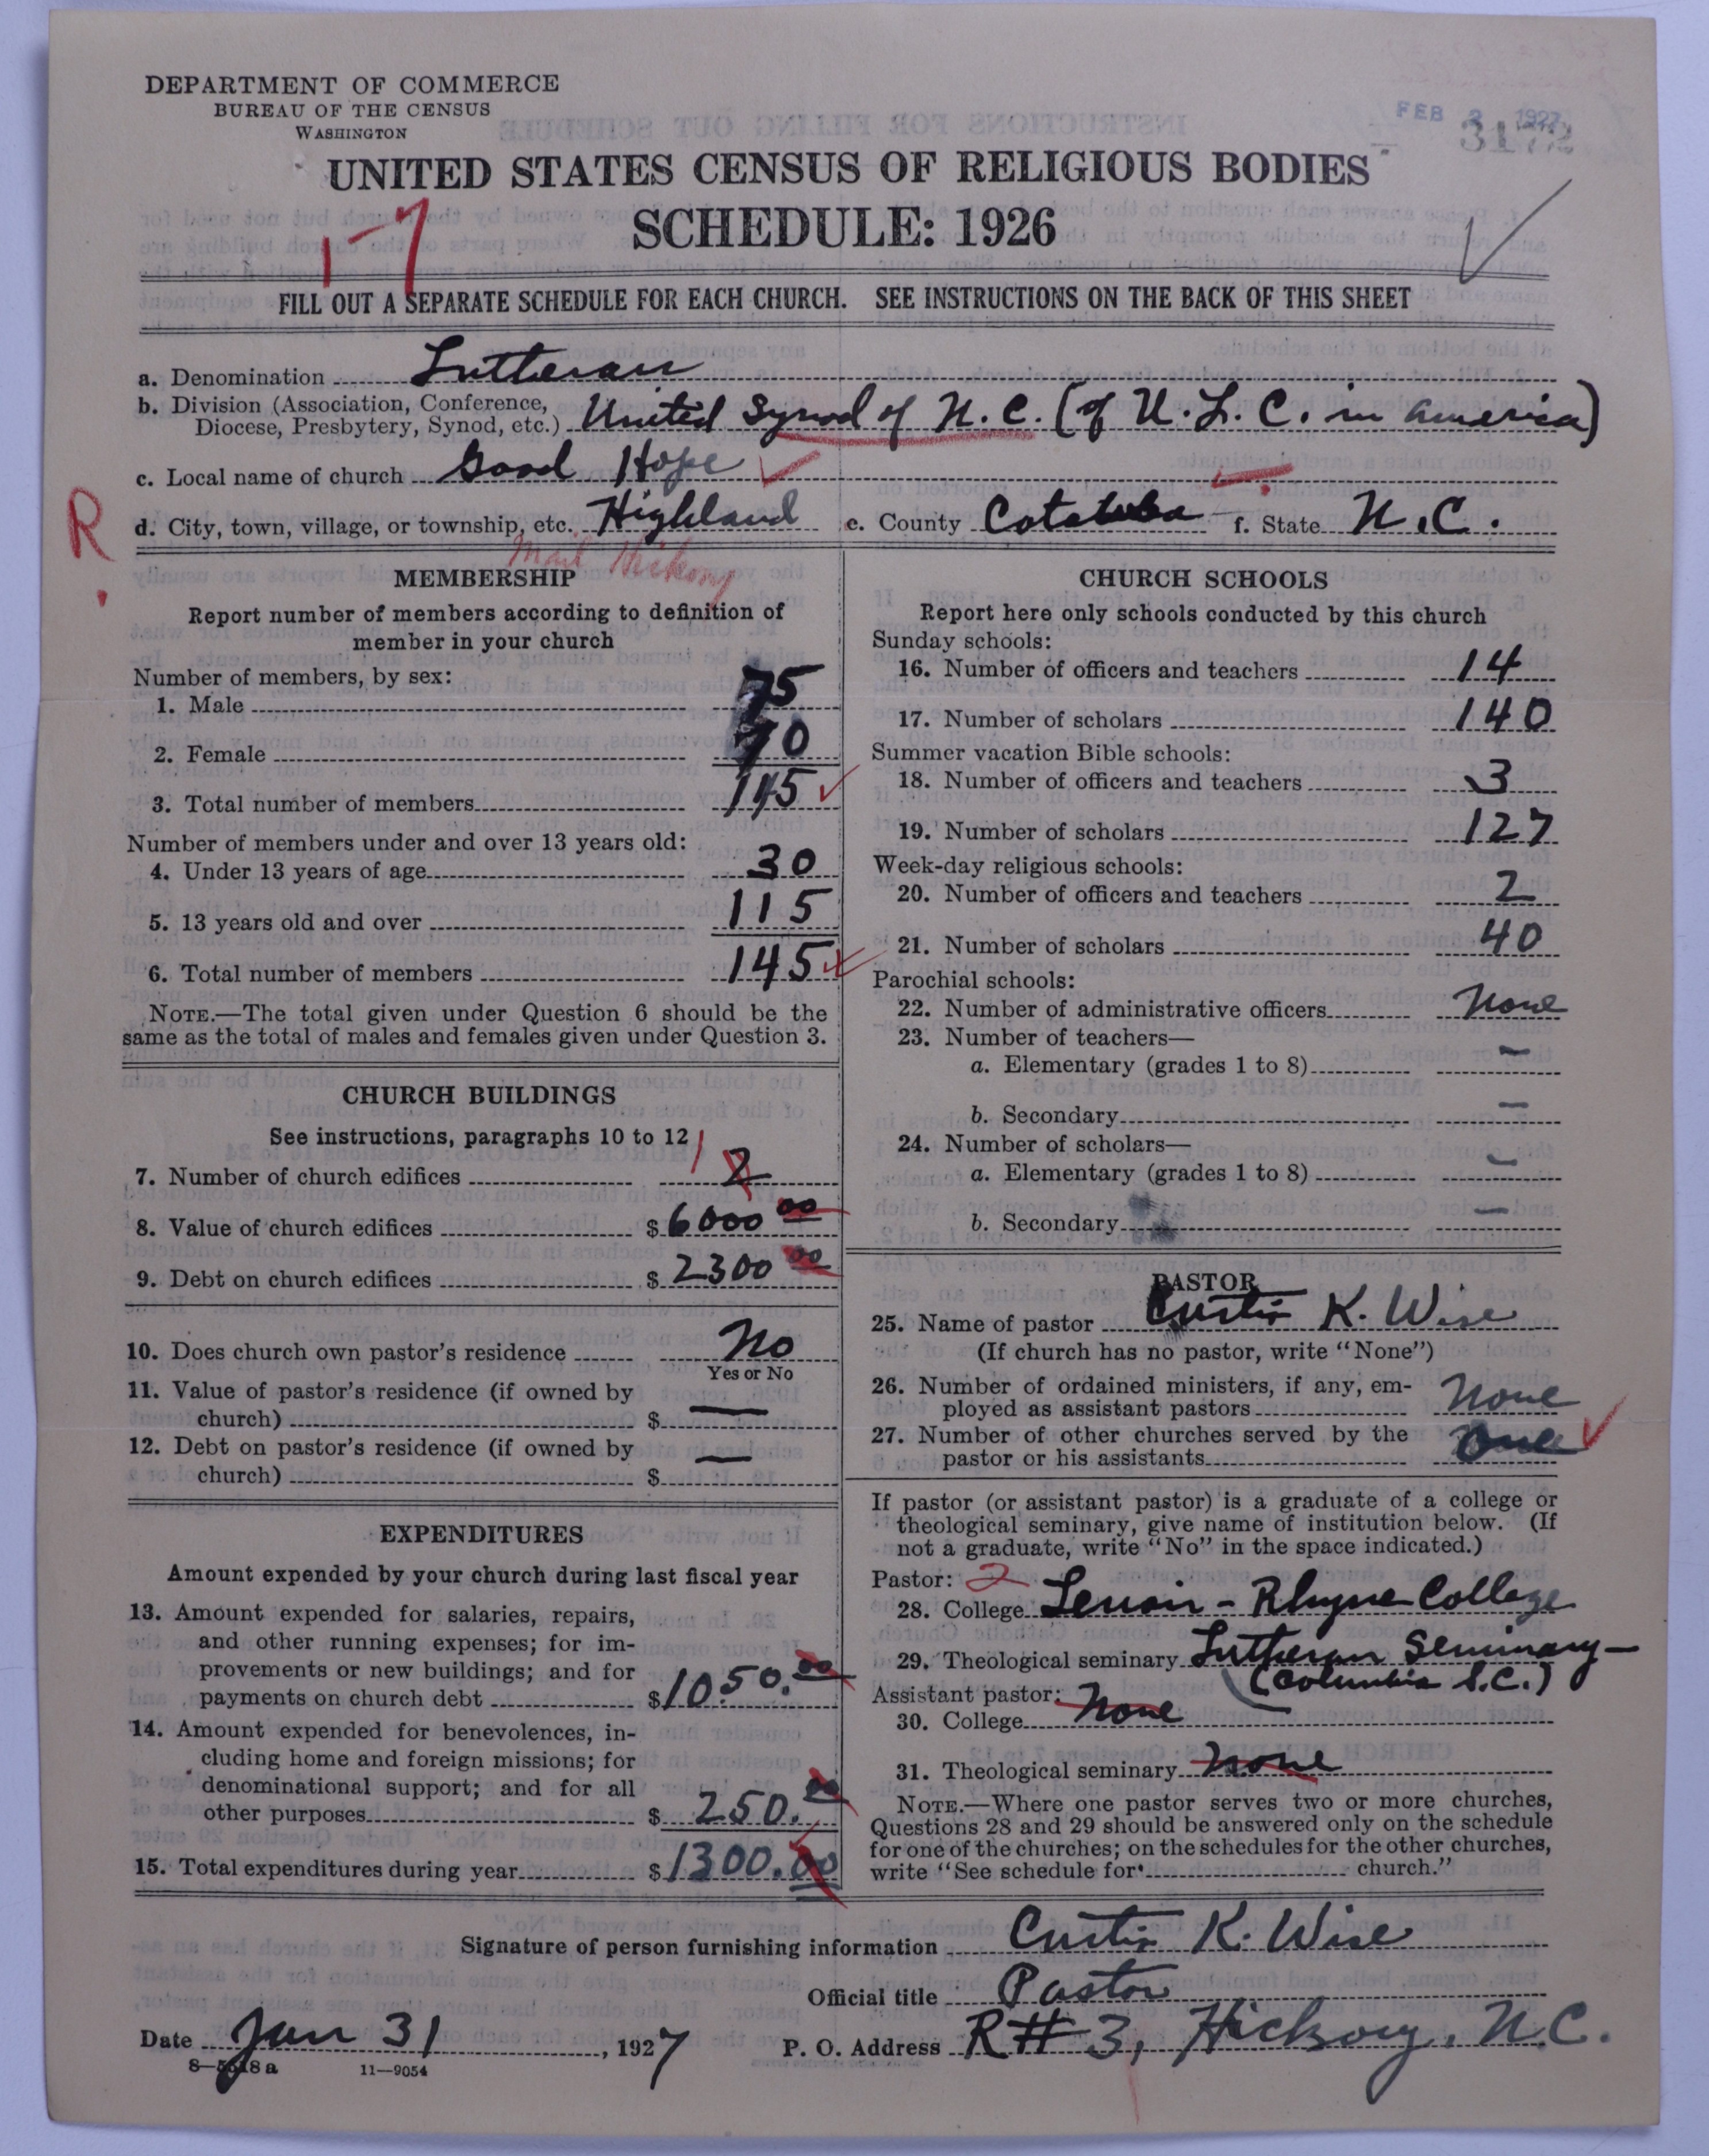 DEPARTMENT OF COMMERCE
BUREAU OF THE CENSUS
WASHINGTON
FEB 2 1927
3172
UNITED STATES CENSUS OF RELIGIOUS BODIES
SCHEDULE: 1926
1-7
FILL OUT A SEPARATE SCHEDULE FOR EACH CHURCH. SEE INSTRUCTIONS ON THE BACK OF THIS SHEET
a. Denomination Lutheran
b. Division (Association, Conference,
Diocese, Presbytery, Synod, etc.) United Synod of N.C. (of U.L.C. in America)
c. Local name of church Good Hope
R.
d. City, town, village, or township, etc. Highland e. County Catawba f. State N.C.
Mail Hickory
MEMBERSHIP
Report number of members according to definition of
member in your church
Number of members, by sex:
1. Male 75
2. Female 70
3. Total number of members 145
Number of members under and over 13 years old:
4. Under 13 years of age 30
5. 13 years old and over 115
6. Total number of members 145
NOTE.—The total given under Question 6 should be the
same as the total of males and females given under Question 3.
CHURCH BUILDINGS
See instructions, paragraphs 10 to 12
7. Number of church edifices 1 2
8. Value of church edifices $6000 00
9. Debt on church edifices $2300 00
10. Does church own pastor's residence No
Yes or No
11. Value of pastor's residence (if owned by
church) $ —
12. Debt on pastor's residence (if owned by
church) $ —
EXPENDITURES
Amount expended by your church during last fiscal year
13. Amount expended for salaries, repairs,
and other running expenses; for im-
provements or new buildings; and for
payments on church debt $1050.00
14. Amount expended for benevolences, in-
cluding home and foreign missions; for
denominational support; and for all
other purposes $250.00
15. Total expenditures during year $1300.00
CHURCH SCHOOLS
Report here only schools conducted by this church
Sunday schools:
16. Number of officers and teachers 14
17. Number of scholars 140
Summer vacation Bible schools:
18. Number of officers and teachers 3
19. Number of scholars 127
Week-day religious schools:
20. Number of officers and teachers 2
21. Number of scholars 40
Parochial schools:
22. Number of administrative officers None
23. Number of teachers—
a. Elementary (grades 1 to 8) —
b. Secondary —
24. Number of scholars—
a. Elementary (grades 1 to 8) —
b. Secondary —
PASTOR
25. Name of pastor Curtis K. Wise
(If church has no pastor, write "None")
26. Number of ordained ministers, if any, em-
ployed as assistant pastors None
27. Number of other churches served by the
pastor or his assistants One
If pastor (or assistant pastor) is a graduate of a college or
theological seminary, give name of institution below. (If
not a graduate, write "No" in the space indicated.)
Pastor: 2
28. College Lenoir-Rhyne College
29. Theological seminary Lutheran Seminary—
(Columbia S.C.)
Assistant pastor:
30. College None
31. Theological seminary None
NOTE.—Where one pastor serves two or more churches,
Questions 28 and 29 should be answered only on the schedule
for one of the churches; on the schedules for the other churches,
write "See schedule for church."
Signature of person furnishing information Curtis K. Wise
Official title Pastor
Date Jan 31, 1927 P. O. Address R#3, Hickory, N.C.
8—5618a 11—9054